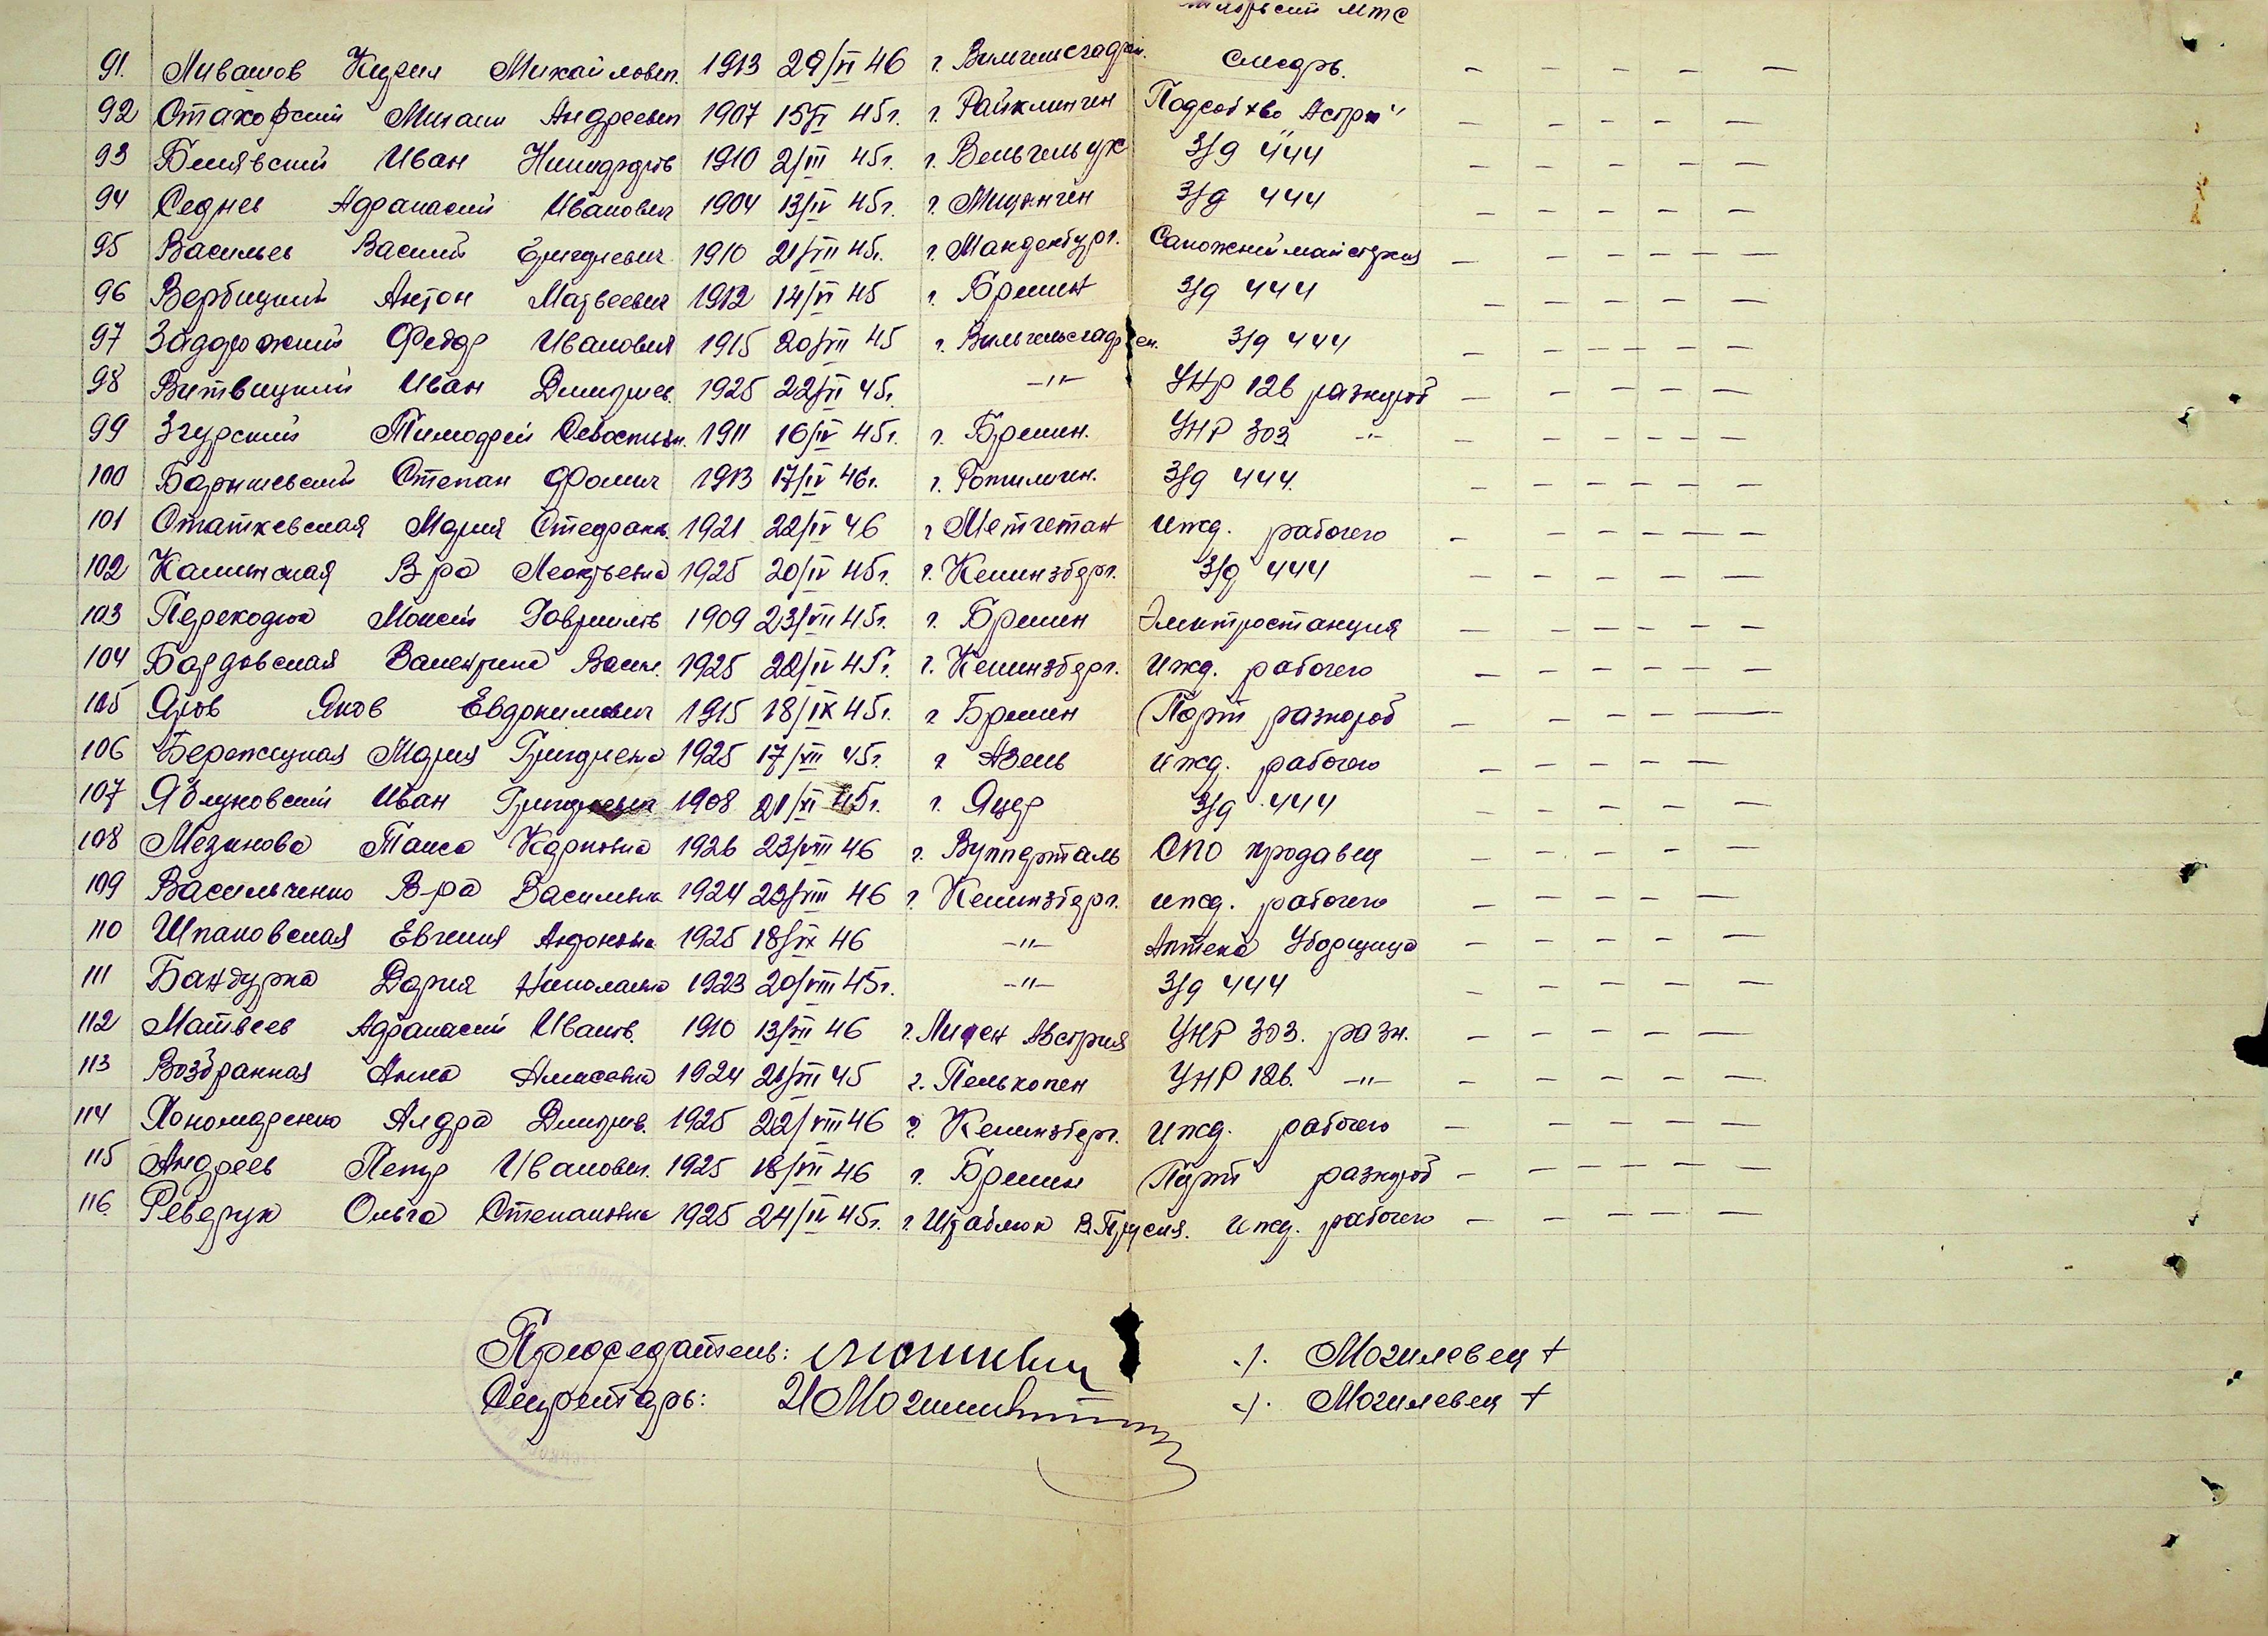 МТС
91. Ливашов Кирил Михайлович. 1913 29/VI 46 г. Вильгельсгафен. Слесарь.
92 Стахофский Михаил Андреевич 1907 15/VI 45г. г. Райклинген Подсобх-во "Астра"
93 Билявский Иван Никифоров 1910 2/III 45г. г. З/д 444
94 Седнев Афанасий Иванович 1904 13/IV 45г. г. З/д 444
95 Васильев Василий Григориевич 1910 21/VII 45г. г. Магдебург. Сапожний майстерня
96 Вербицкий Антон Матвеевич 1912 14/VI 45 г. Бремен З/д 444
97 Задорожний Федор Иванович 1915 20/VII 45 г. Вильгельсгафен. З/д 444
98 Витвицкий Иван Дмитриев. 1925 22/VI 45г. -"- УНР 126 разнораб
99 Згурский Тимофей Севостьян. 1911 16/IV 45г. г. Бремен. УНР 303 -"-
100 Барышевский Степан Фомич 1913 17/IV 46г. г. З/д 444.
101 Статкевская Мария Стефанов. 1921 22/IV 46 г. Метгетан ижд. рабочего
102 Калинская В-ра Леонтьевна 1925 20/IV 45г. г. Кенинзберг. З/д 444
103 Переходюк Моисей Гаврилов 1909 23/VII 45г. г. Бремен Электростанция
104 Бардовская Валентина Васил. 1925 22/IV 45г. г. Кенинзберг. ижд. рабочего
105 Яков Евдокимович 1915 18/IX 45г. г. Бремен Порт разнораб
106 Бережицкая Мария Григориевна 1925 17/VII 45г. г. Азель ижд. рабочего
107 Яблуновский Иван Григориевич 1908 21/XI 45г. г. Яцер З/д 444
108 Мезинова Таиса Карповна 1926 23/VIII 46 г. Вупперталь СПО продавец
109 Васильченко В-ра Васильев. 1924 23/VIII 46 г. Кенинзберг. ижд. рабочего
110 Шпаковская Евгения Антоновна 1925 18/IX 46 -"- Аптека Уборщица
111 Бандурка Дария Николаевна 1923 20/VIII 45г. -"- З/д 444
112 Матвеев Афанасий Иванов. 1910 13/VII 46 г. Австрия УНР 303. разн.
113 Возбранная Анна Алисеевна 1924 21/VII 45 г. Пелькопен УНР 126. -"-
114 Пономаренко Ал-дра Дмитров. 1925 22/VIII 46 г. Кенинзберг. ижд. рабочего
115 Андреев Петр Иванович. 1925 18/VII 46 г. Бремен Порт разнораб
116. Реверук Ольга Степановна 1925 24/IV 45г. г. Штаблюк В.Прусия. ижд. рабочего
Председатель: /. Могилевец /
Секретарь: /. Могилевец /